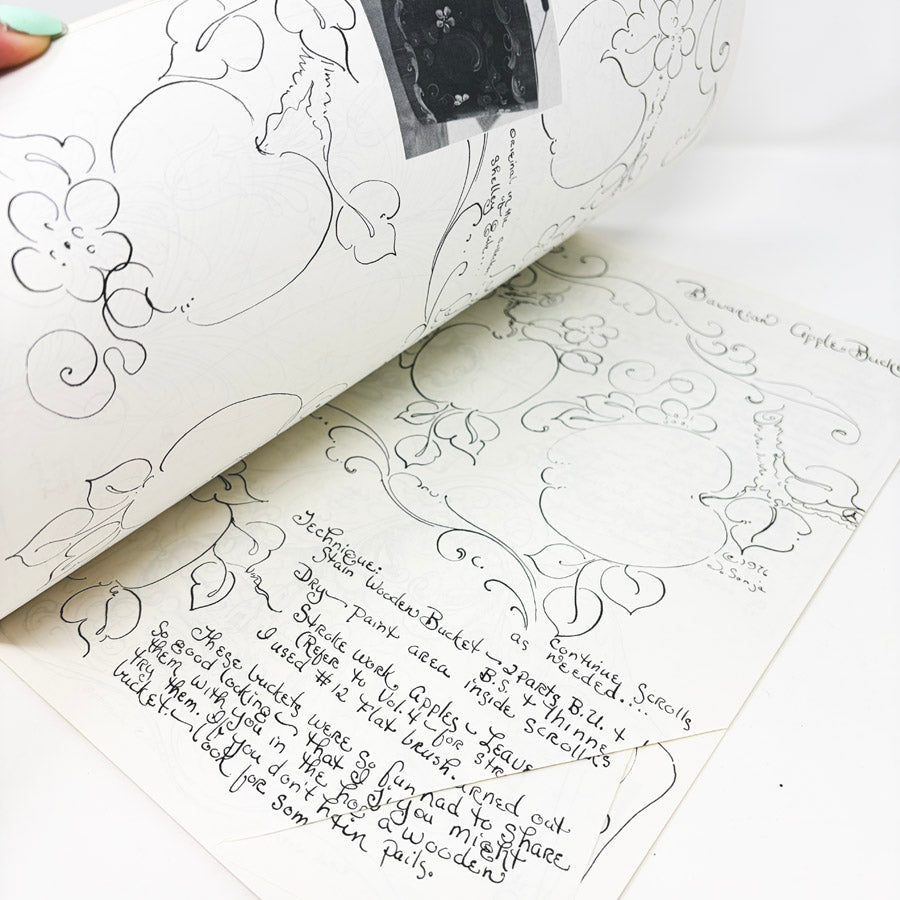 Original of the
Shelley
Bavarian Apple Buck
© 1976
Jo Sonja
C.
Continue Scrolls
as needed....
Technique:
Stain Wooden Bucket ~ 2 parts B.U. +
B.S. + Thinne
Dry ~ paint area inside Scrolls
Stroke work, Apples ~ Leave
(Refer to Vol. 4 for str
I used #12 flat brush.
These buckets were so fun
so good looking ~ that I had to share
them with you in the hop
try them. If you don't a wooden
bucket ~ look for som tin pails.
urned out
you might